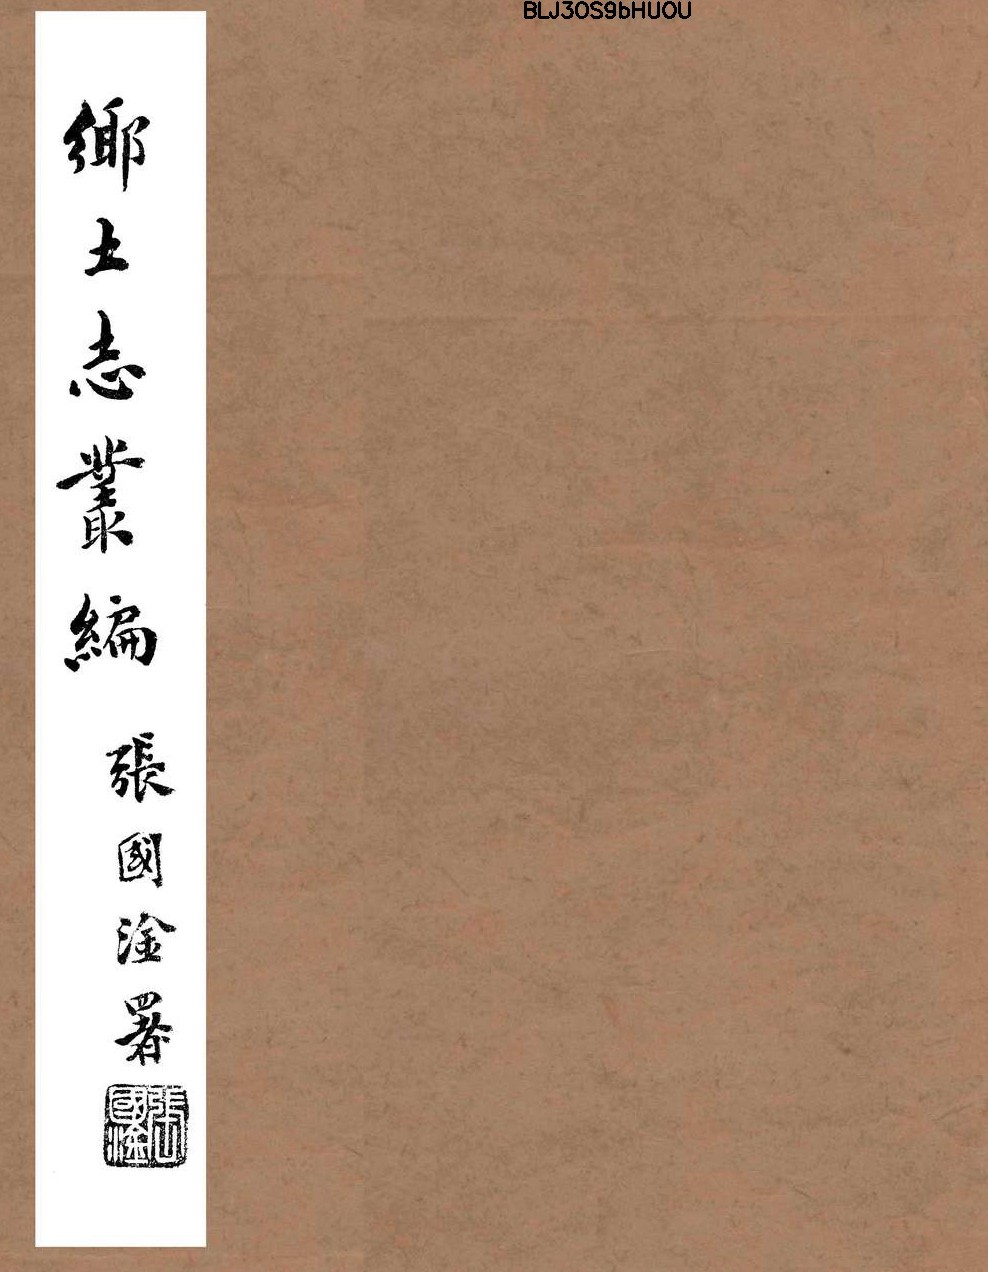 BLJ3OS9bHUOU
鄉土志叢編
張國淦署
張國淦